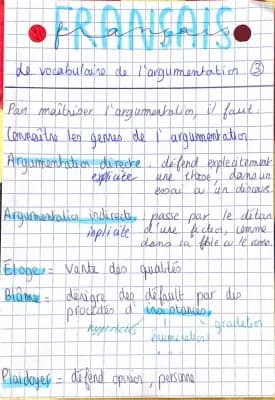 FRANÇAIS
français
Le vocabulaire de l'argumentation ③
Pour maîtriser l'argumentation, il faut
Connaître les genres de l'argumentation
Argumentation directe, défend explicitement
explicite une thèse, dans un
essai ou un discours.
Argumentation indirecte, passe par le détour
implicite d'une fiction, comme
dans la fable ou le roman.
Éloge = vante des qualités
Blâme = désigne des défault par des
procédés d'insistances
hyperboles ! gradation
énumération
Plaidoyer = défend opinion, personne